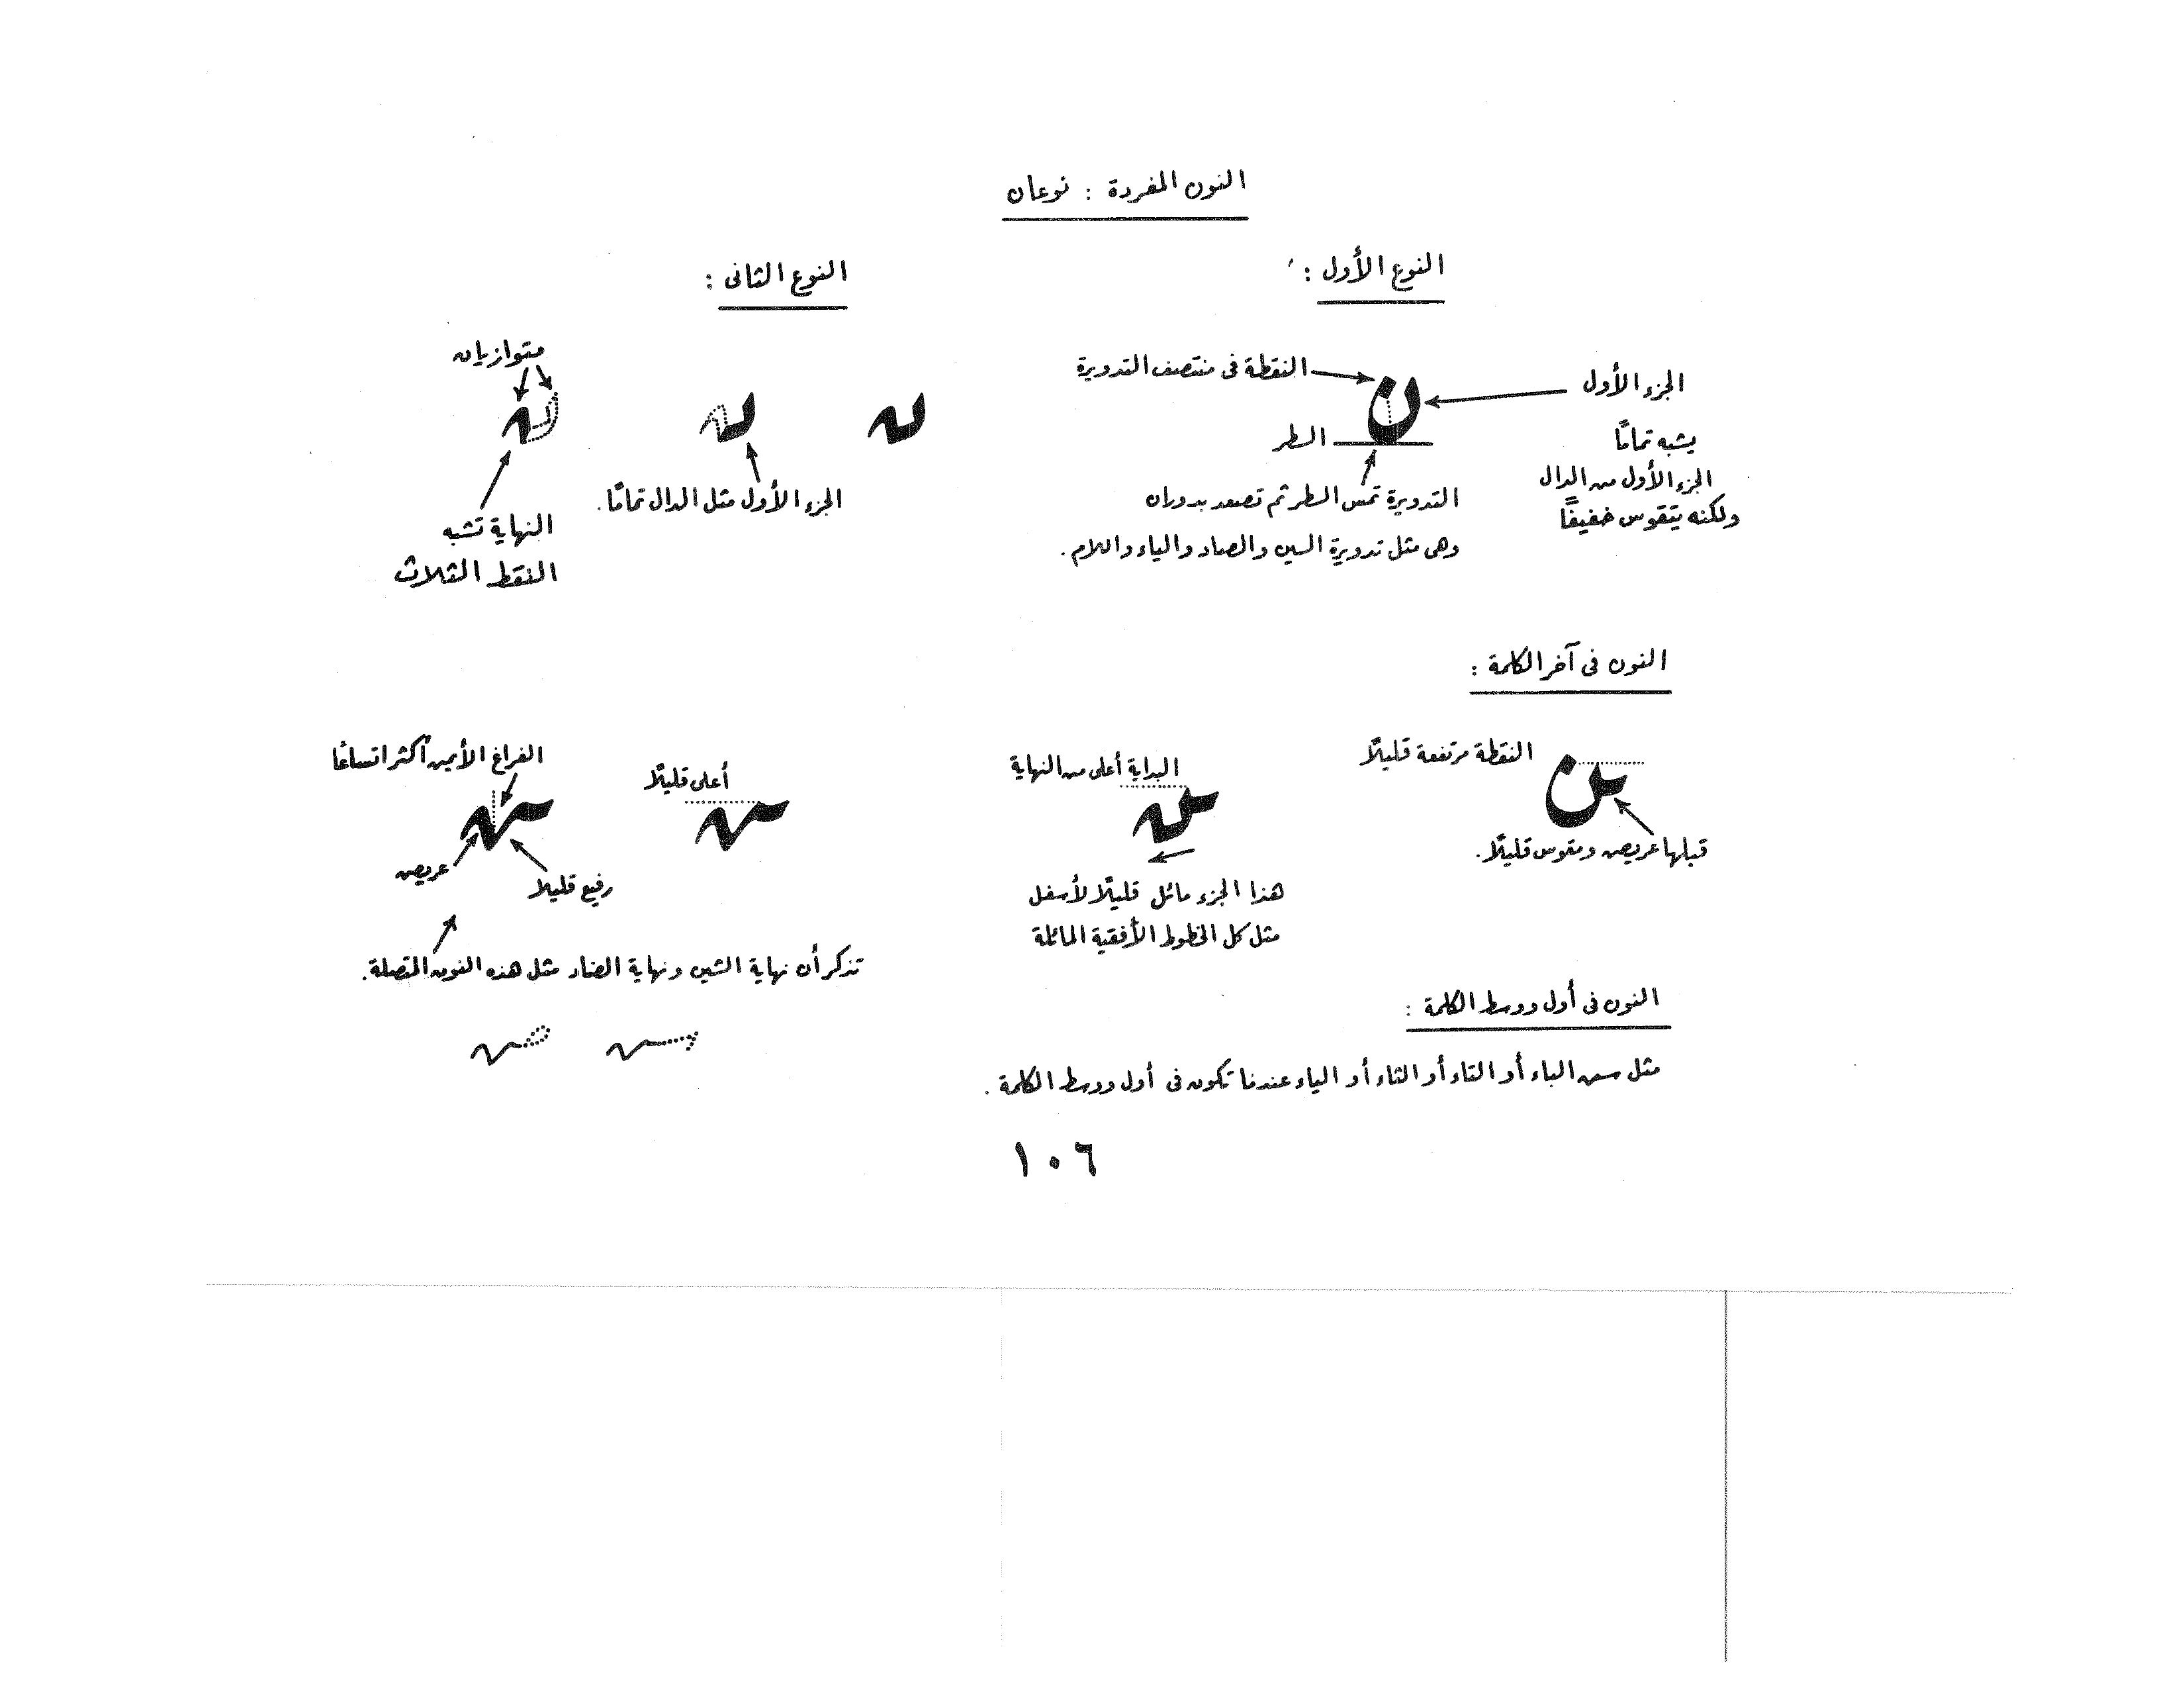 النون المفردة : نوعان
النوع الأول :
النقطة فى منتصف التدويرة
الجزء الأول
يشبه تمامًا
الجزء الأول من الدال
ولكنه يتقوس خفيفًا
السطر
التدويرة تمس السطر ثم تصعد بدوران
وهى مثل تدويرة السين والصاد والياء واللام .
النوع الثانى :
ن
الجزء الأول مثل الدال تمامًا .
متوازيان
النهاية تشبه
النقط الثلاث
النون فى آخر الكلمة :
النقطة مرتفعة قليلًا
قبلها عريض ومقوس قليلًا .
البداية أعلى من النهاية
هذا الجزء مائل قليلًا لأسفل
مثل كل الخطوط الأفقية المائلة
أعلى قليلًا
الفراغ الأيمن أكثر اتساعًا
عريض
رفيع قليلا
تذكر أن نهاية الشين ونهاية الضاد مثل هذه النون المتصلة .
النون فى أول ووسط الكلمة :
مثل سن الباء أو التاء أو الثاء أو الياء عندما تكون فى أول ووسط الكلمة .
١٠٦